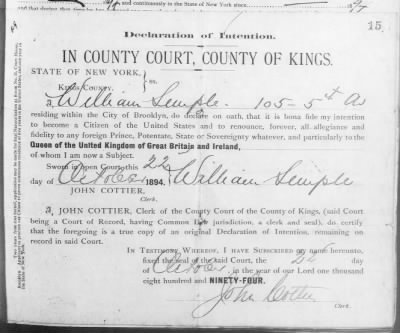 and continuously in the State of New York since
and that during such
15
Declaration of Intention.
IN COUNTY COURT, COUNTY OF KINGS.
STATE OF NEW YORK,
KINGS COUNTY.
ss.
I, William Semple. 105-5th Av
residing within the City of Brooklyn, do declare on oath, that it is bona fide my intention
to become a Citizen of the United States and to renounce, forever, all allegiance and
fidelity to any foreign Prince, Potentate, State or Sovereignty whatever, and particularly to the
Queen of the United Kingdom of Great Britain and Ireland,
of whom I am now a Subject.
Sworn in open Court, this 22
day of October 1894. William Semple
JOHN COTTIER,
Clerk.
I, JOHN COTTIER, Clerk of the County Court of the County of Kings, (said Court
being a Court of Record, having Common Law jurisdiction, a clerk and seal), do certify
that the foregoing is a true copy of an original Declaration of Intention, remaining on
record in said Court.
IN TESTIMONY WHEREOF, I HAVE SUBSCRIBED my name hereunto,
fixed the seal of the said Court, the
day of October in the year of our Lord one thousand
eight hundred and NINETY-FOUR.
John Cottier
Clerk.